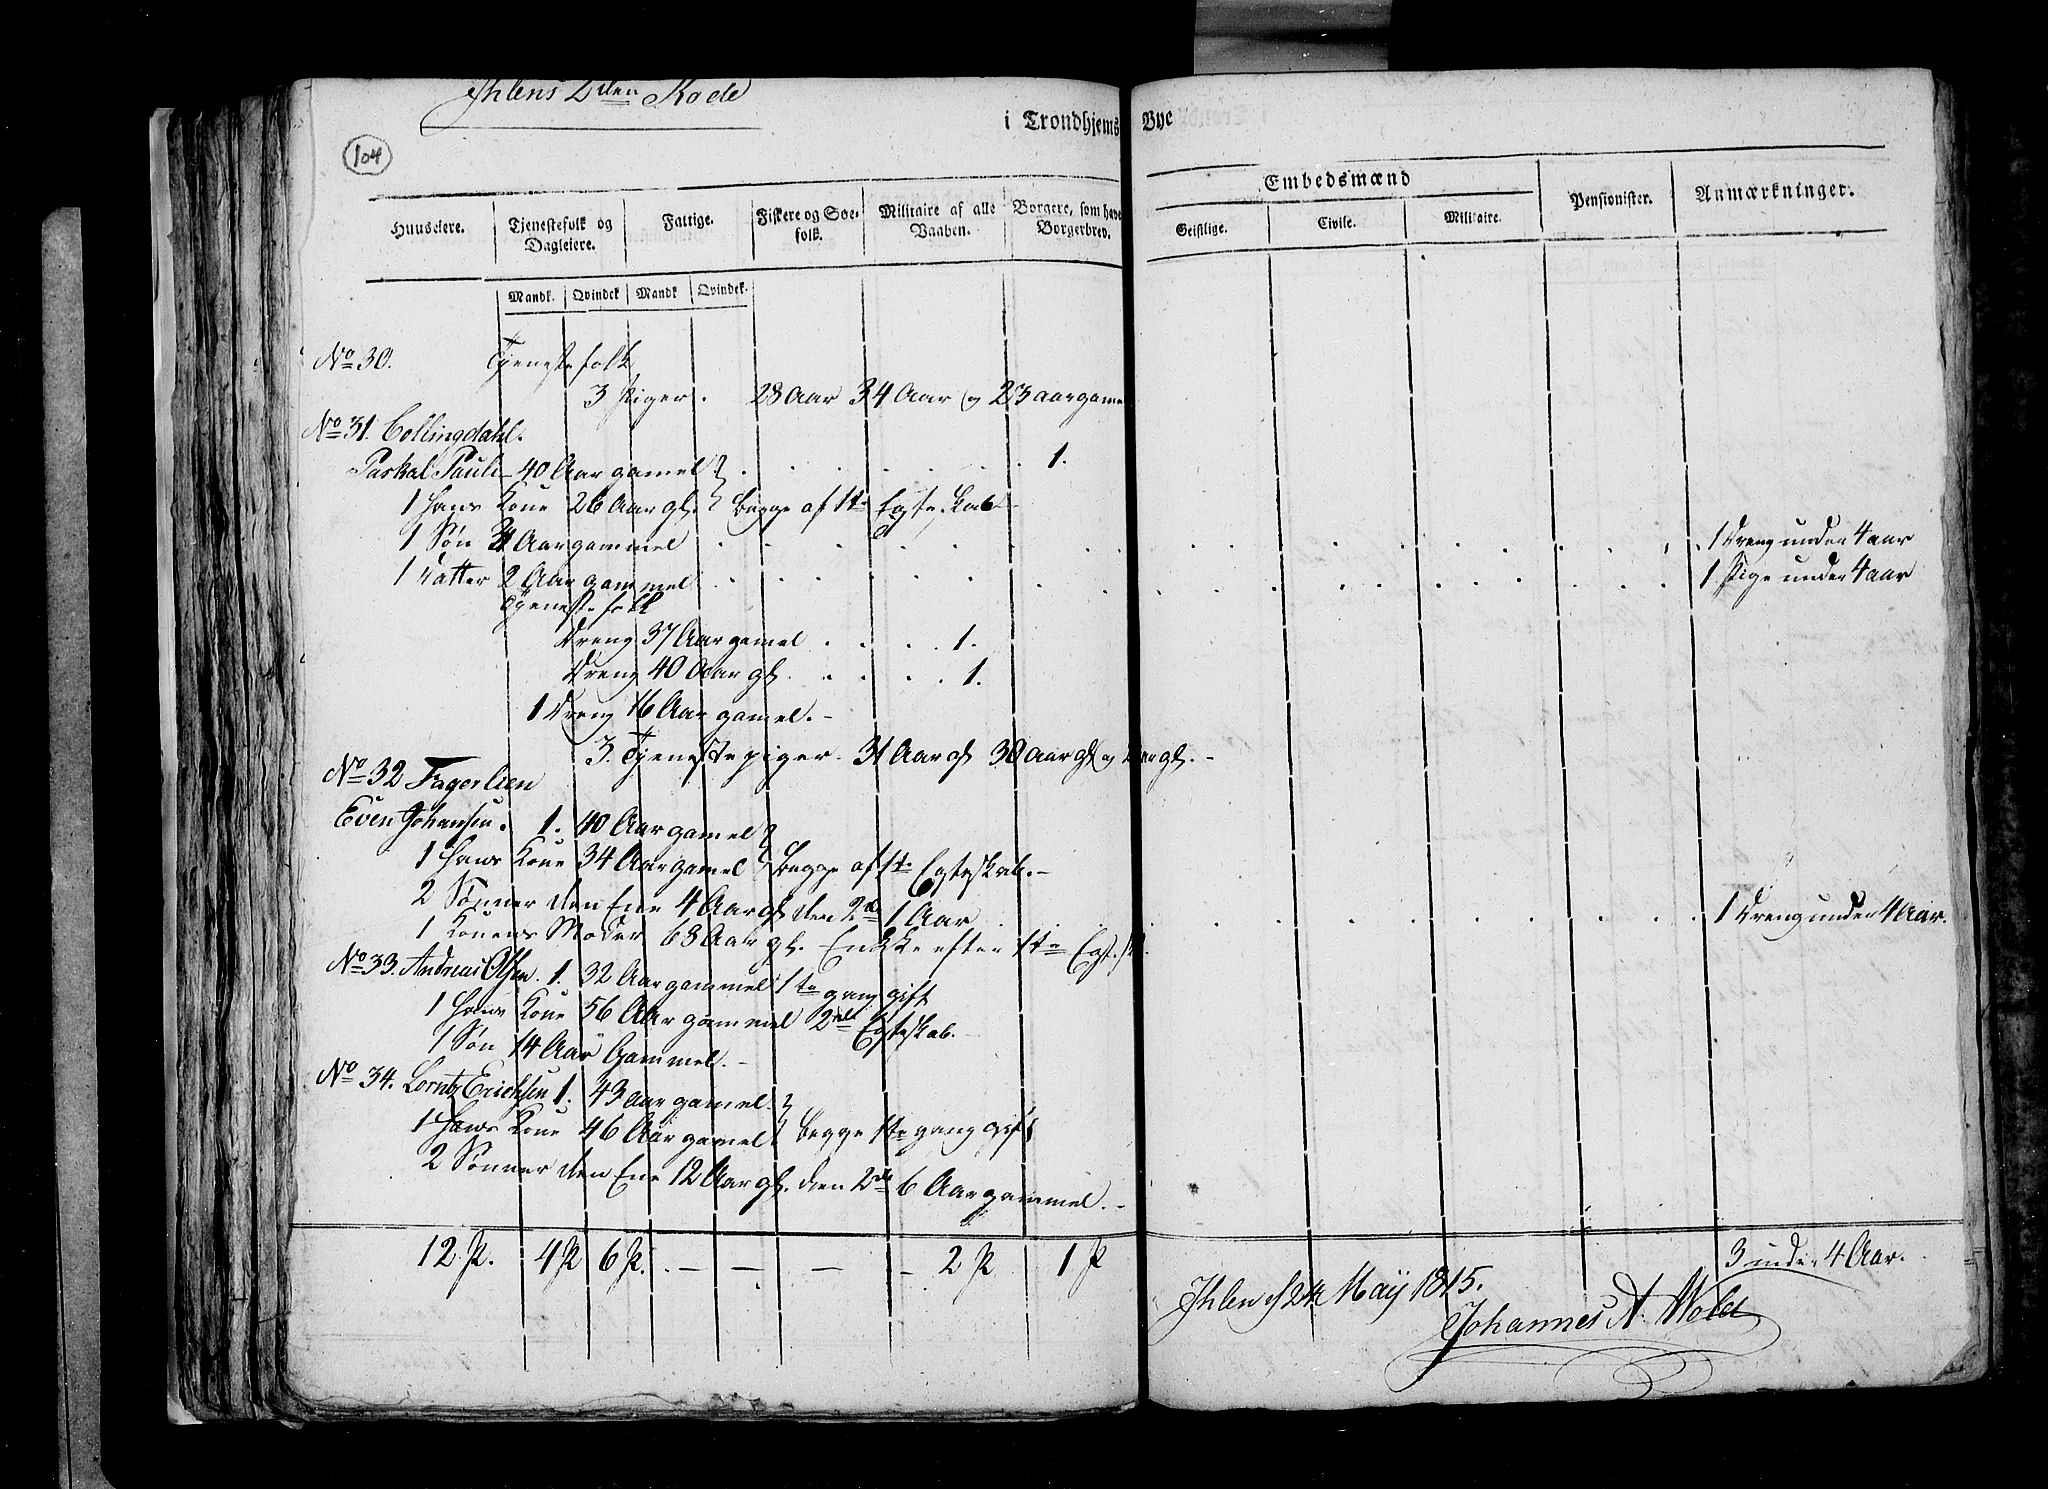 Ihlens 2den Rode
i Trondhjems Bye
104
Huuseiere.
Tjenestefolk og Dagleiere.
Fattige.
Fiskere og Søe-folk.
Militaire af alle Vaaben.
Borgere, som have Borgerbrev.
Embedsmænd
Geistlige.
Civile.
Militaire.
Pensionister.
Anmærkninger.
Mandk. Qvindek Mandk Qvindek.
No 30. Tjenestefolk
3 Piger. 28 Aar 34 Aar og 23 aar game
No 31. Collingdahl.
Paskal Pauli 40 Aar gamel 1.
1 Hans Kone 26 Aar gl. begge af 1te Egteskab
1 Søn Aar gammel 1 Dreng under 4 aar
1 Datter 2 Aar gammel 1 Pige under 4 aar
Tjenestefolk
Dreng 37 Aar gamel 1.
Dreng 40 Aar gl. 1.
1 Dreng 16 Aar gamel.
3. Tjenestepiger. 31 Aar gl 30 Aar gl og
No 32 Fagerlien
Even Johansen. 1. 40 Aar gamel
1 Hans Kone 34 Aar gamel begge af 1te Egteskab.
2 Sønner den Ene 4 Aar gl den 2de 1 Aar 1 Dreng under 4 Aar.
1 Konens Moder 68 Aar gl. Enkke efter 1te Egt.sk.
No 33. Andreas Olsen. 1. 32 Aar gammel 1te gang gift
1 Hans Kone 56 Aar gammel 2det Egteskab.
1 Søn 14 Aar Gammel.
No 34. Lorntz Erichsen 1. 43 aar gamel.
1 Hans Kone 46 Aar gamel begge 1te gang gift
2 Sønner den Ene 12 Aar gl. den 2de 6 Aar gammel.
12 P. 4 P 6 P. 2 P 1 P 3 under 4 Aar.
Ihlen d 24 Maÿ 1815.
Johannes A. Wold